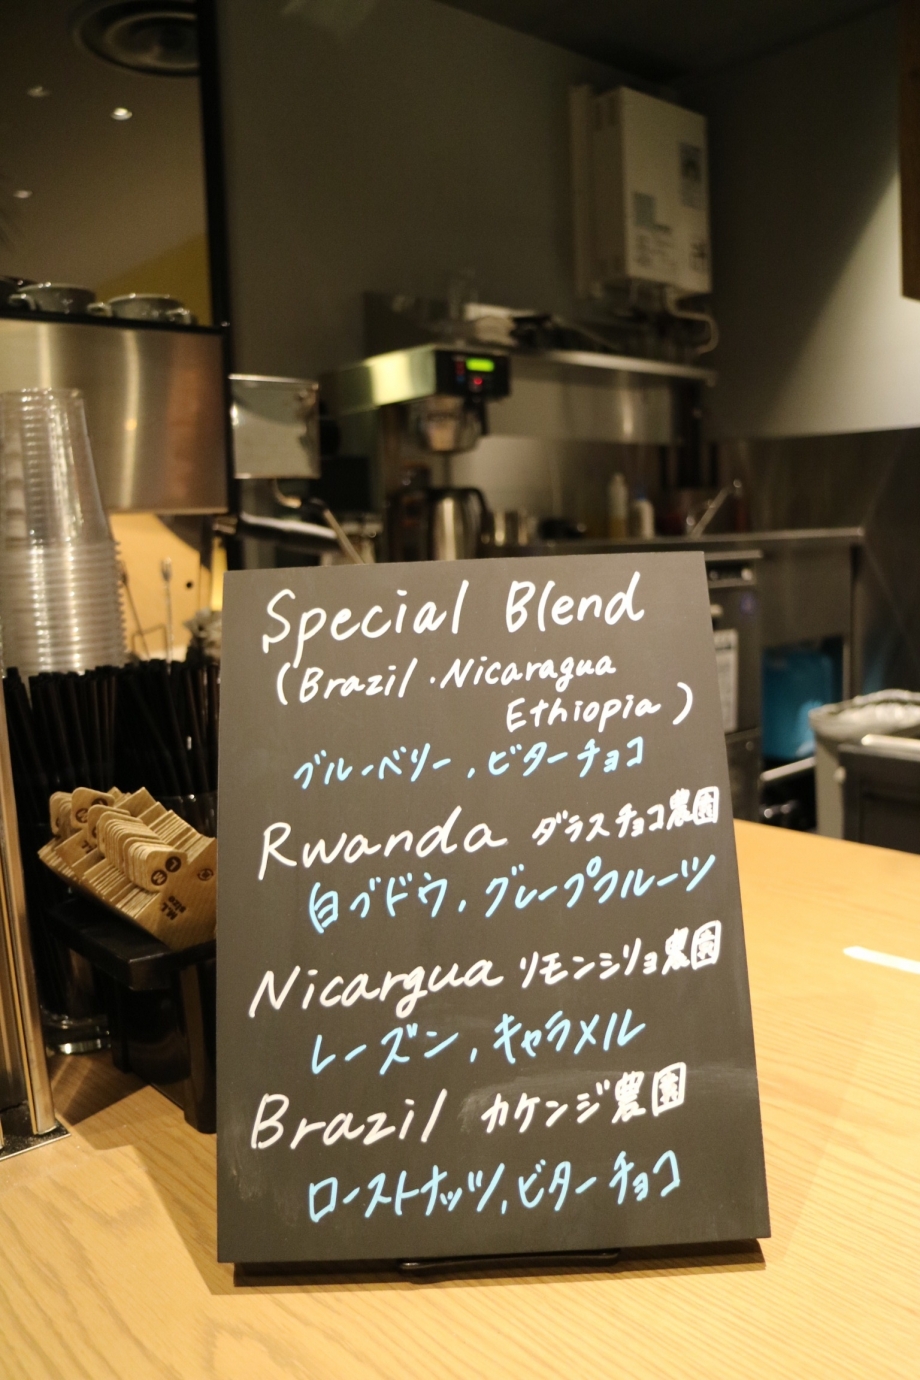 Special Blend
(Brazil・Nicaragua
Ethiopia)
ブルーベリー,ビターチョコ
Rwanda ダラスチョコ農園
白ブドウ,グレープフルーツ
Nicargua リモンシリョ農園
レーズン,キャラメル
Brazil カケンジ農園
ローストナッツ,ビターチョコ